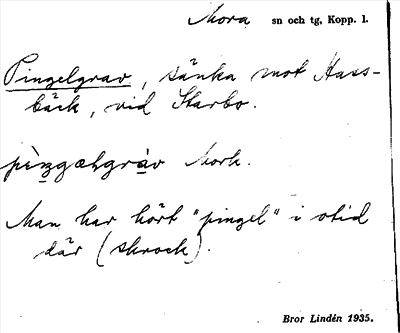 Mora sn och tg, Kopp. l.
Pingelgrav, sänka mot Hass-
bäck, vid Starbo.
pe̖ŋgælgra̖v Mork.
Man har hört "pingel" i otid
där (skrock).
Bror Lindén 1935.